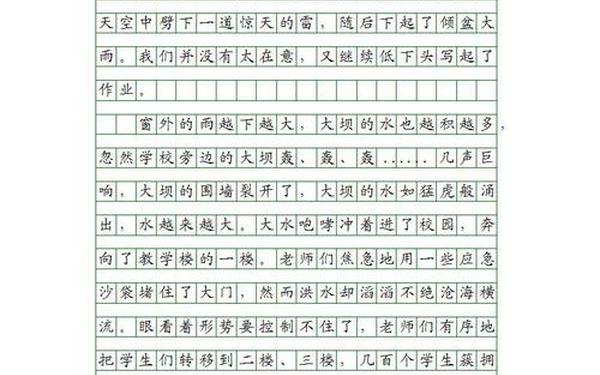 天空中劈下一道惊天的雷，随后下起了倾盆大
雨。我们并没有太在意，又继续低下头写起了
作业。
窗外的雨越下越大，大坝的水也越积越多，
忽然学校旁边的大坝轰、轰、轰……几声巨
响，大坝的围墙裂开了，大坝的水如猛虎般涌
出，水越来越大。大水咆哮冲着进了校园，奔
向了教学楼的一楼。老师们焦急地用一些应急
沙袋堵住了大门，然而洪水却滔滔不绝沧海横
流。眼看着形势要控制不住了，老师们有序地
把学生们转移到二楼、三楼，几百个学生簇拥